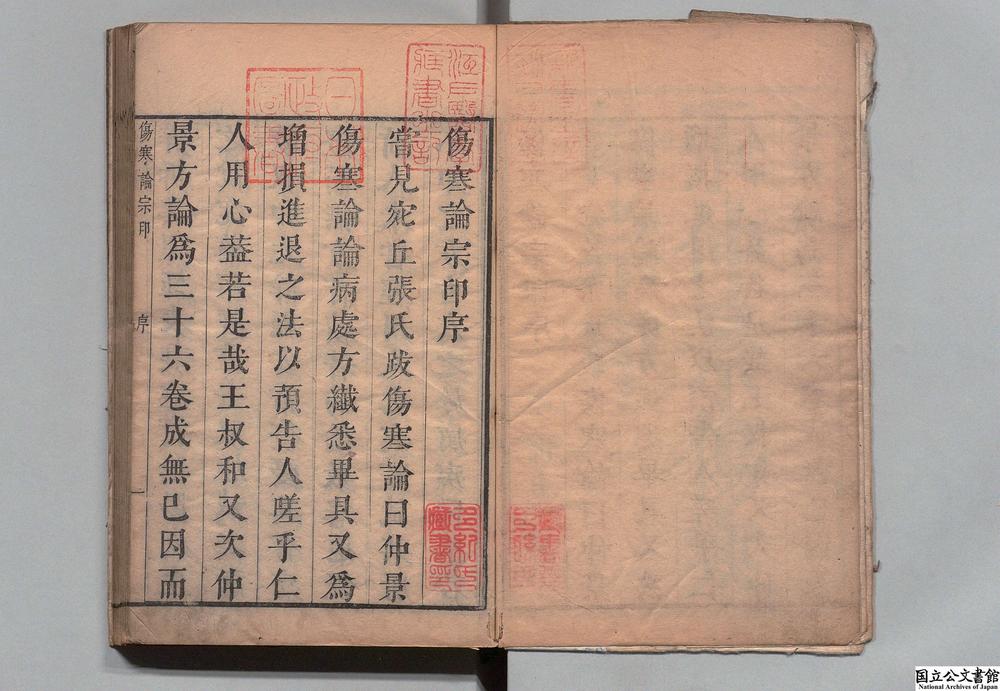 傷寒論宗印序
嘗見宛丘張氏跋傷寒論曰仲景
傷寒論論病處方纖悉畢具又爲
增損進退之法以預告人嗟乎仁
人用心葢若是哉王叔和又次仲
景方論爲三十六卷成無已因而
傷寒論宗印
序
一
日本政府圖書
江戸醫學藏書之記
国立公文書館
National Archives of Japan